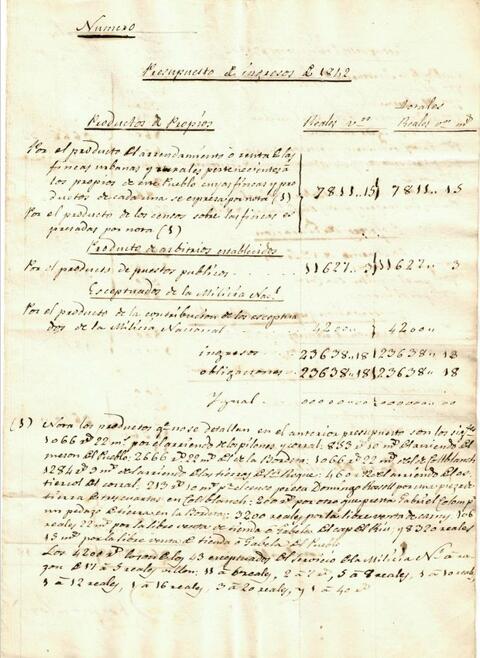 Numero
Presupuesto de ingresos de 1842
Totales
Productos de Propios Reales von Reales von ms
Por el producto del arrendamiento ó renta de las
fincas urbanas y rurales pertenecientes á
los propios de este Pueblo cuyas fincas y pro
ductos de cada una se espresa por nota (1) 7811.. 15 7811.. 15
Por el producto de los censos sobre las fincas es
presadas por nota (1)
Producto de arbitrios establecidos
Por el producto de puestos publicos 11627.. 3 11627.. 3
Esceptuados de la Milicia Nacl
Por el producto de la contribucion de los esceptua
dos de la Milicia Nacional 4200 4200
ingresos 23638.. 18 23638.. 18
obligaciones 23638.. 18 23638.. 18
Ygual
(1) Nota los productos qe no se detallan en el anterior presupuesto son los sigtes
1066 rs 22 ms por el arriendo de los pilones y corral. 863 rs 10 ms el arriendo del
meson del Pueblo. 2666 rs 22 ms el de la Bordera. 1066 rs 22 ms el de Collblanch
1284 rs 9 ms del arriendo de las tierras de Sn Roque. 40 rs el del arriendo del es
tiercol del corral. 213 rs 10 ms que presta Domingo por una pieza de
tierra en Collblanch. 200 rs por otro que presta Gabriel Colom pr
un pedazo de tierra en la Bordera. 3200 reales por la libre venta de carne, 106
reales 22 ms por la libre venta de tienda o Gabela del cap del Riu, y 8320 reales
15 ms por la libre venta de tienda o Gabela del Pueblo
Los 4200 rs los 43 esceptuados del servicio de la Milicia Nl a ra
zon de 17 á 5 reales vellon: 11 á 6 reales, 2 á 7 rs, 5 á 8 reales, 1 á 10 reales
1 á 12 reales, 1 á 16 reales, 3 á 20 reales, y 1 á 40 rs